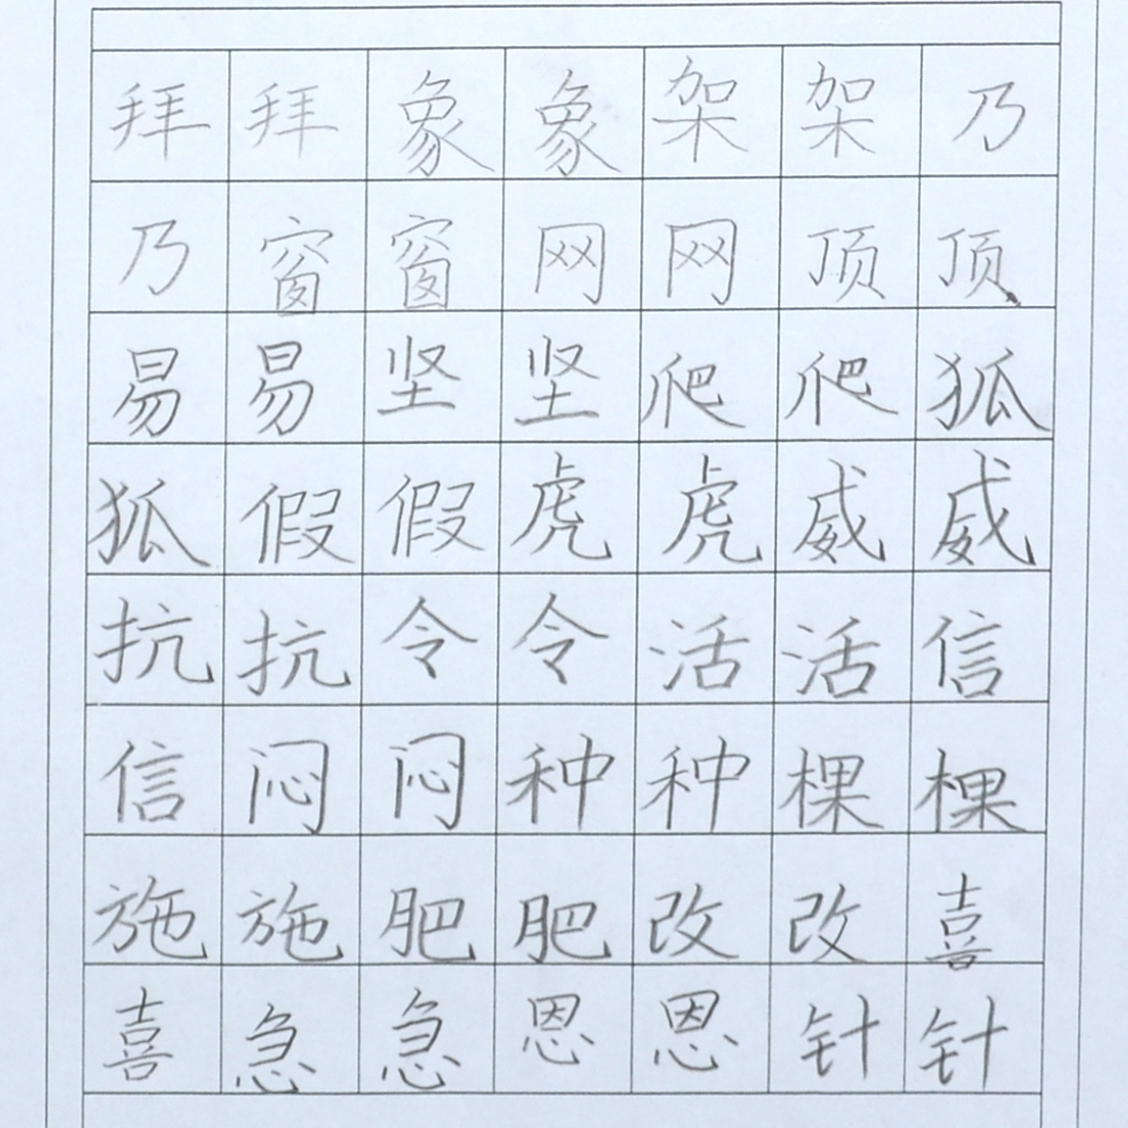 拜拜象象架架乃
乃窗窗网网顶顶
易易坚坚爬爬狐
狐假假虎虎威威
抗抗令令活活信
信闷闷种种棵棵
施施肥肥改改喜
喜急急恩恩针针